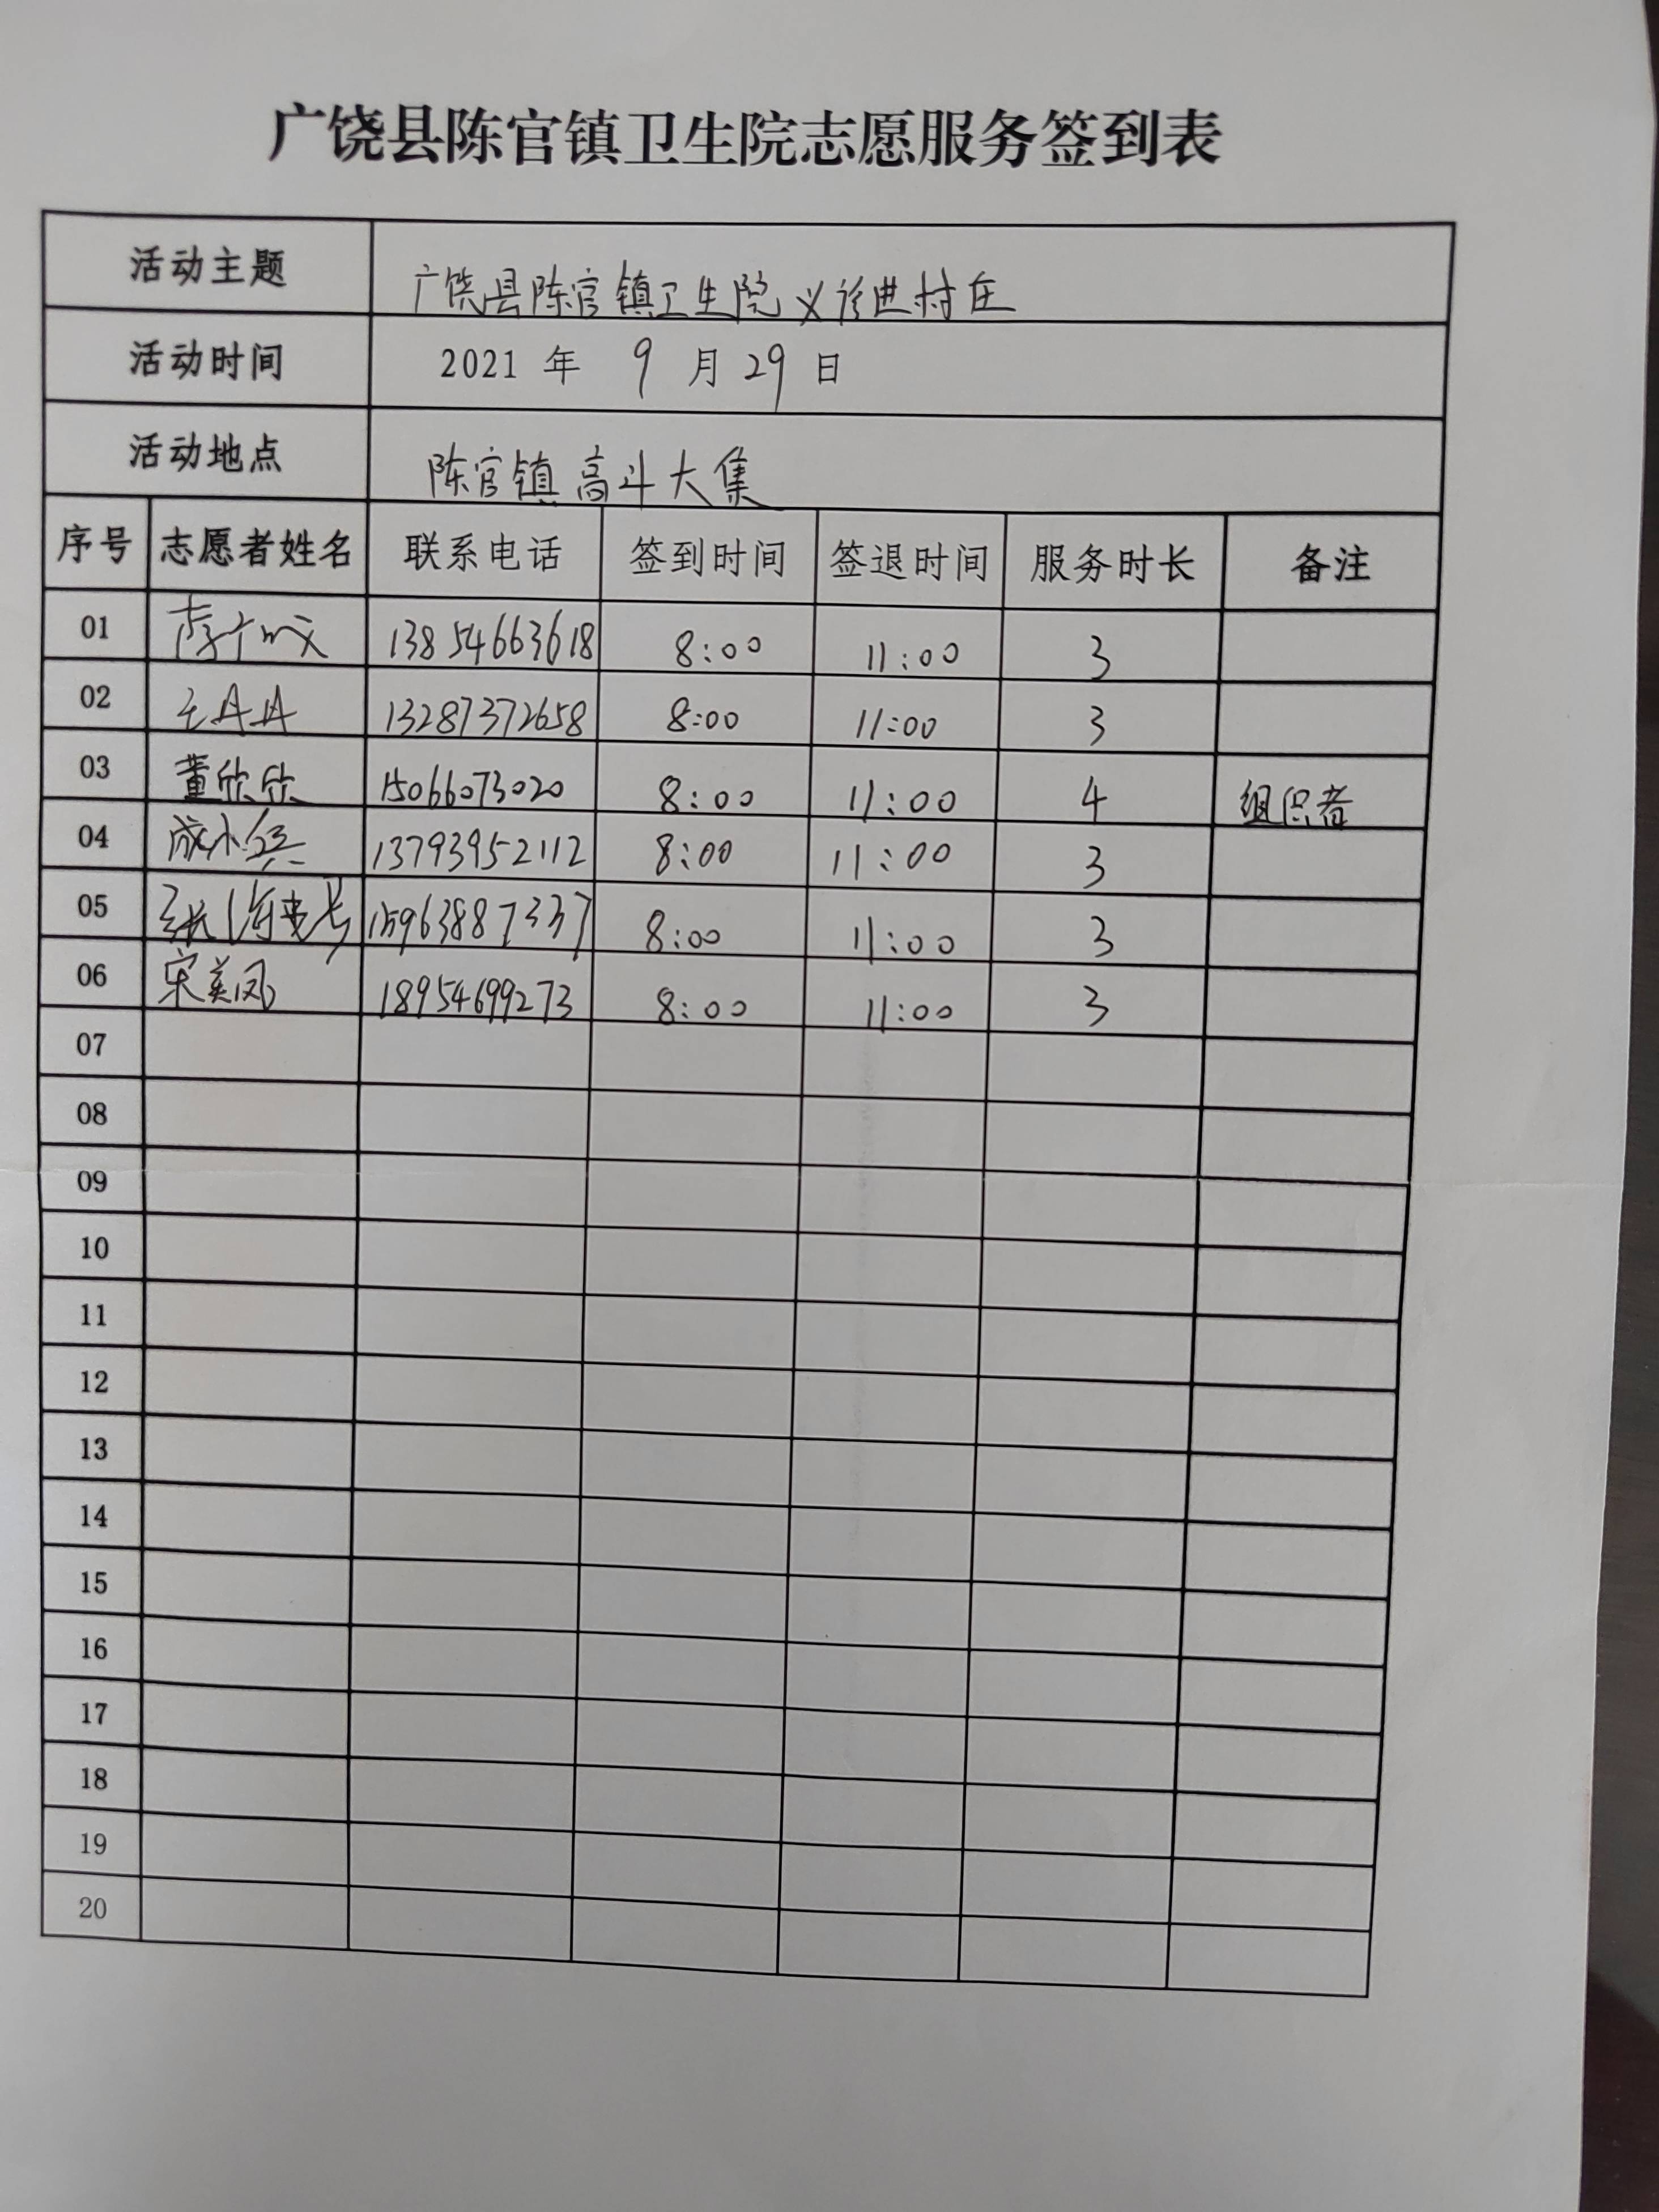 广饶县陈官镇卫生院志愿服务签到表
活动主题 广饶县陈官镇卫生院义诊进村庄
活动时间 2021 年 9 月 29 日
活动地点 陈官镇高斗大集
序号 志愿者姓名 联系电话 签到时间 签退时间 服务时长 备注
01 13854663618 8:00 11:00 3
02 王丹丹 13287372658 8:00 11:00 3
03 董欣欣 15066073020 8:00 11:00 4 组织者
04 成小兵 13793952112 8:00 11:00 3
05 15963887337 8:00 11:00 3
06 宋美凤 18954699273 8:00 11:00 3
07
08
09
10
11
12
13
14
15
16
17
18
19
20